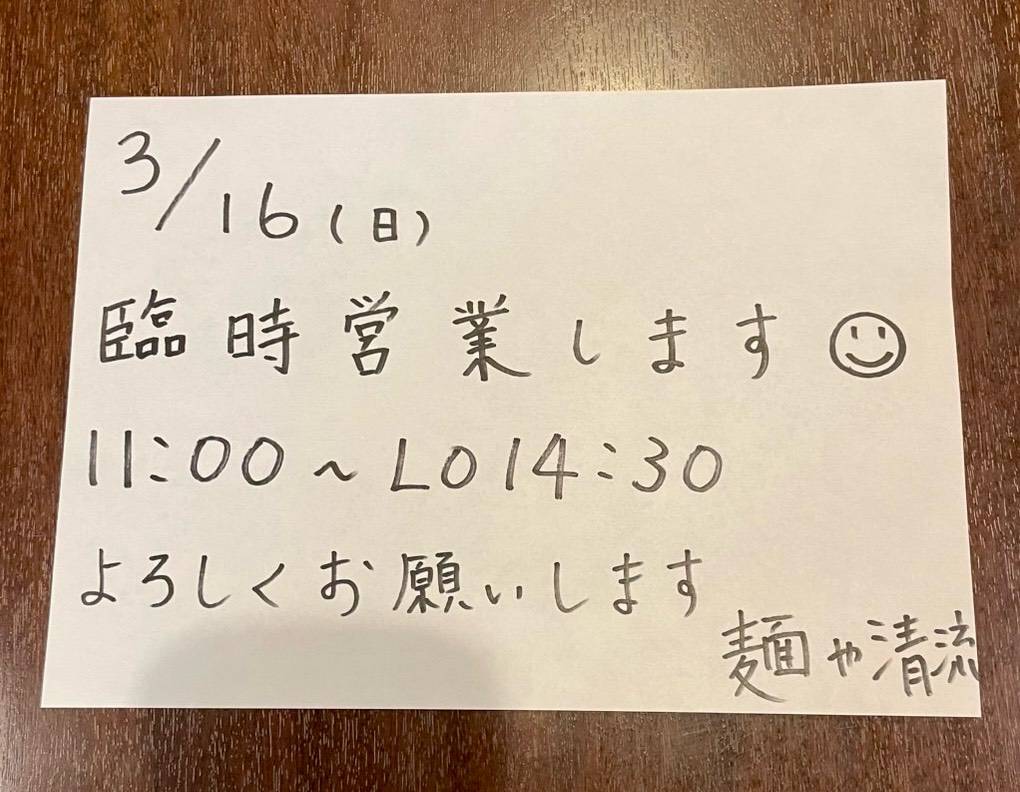 3/16(日)
臨時営業します☺
11:00~LO14:30
よろしくお願いします
麺や清流